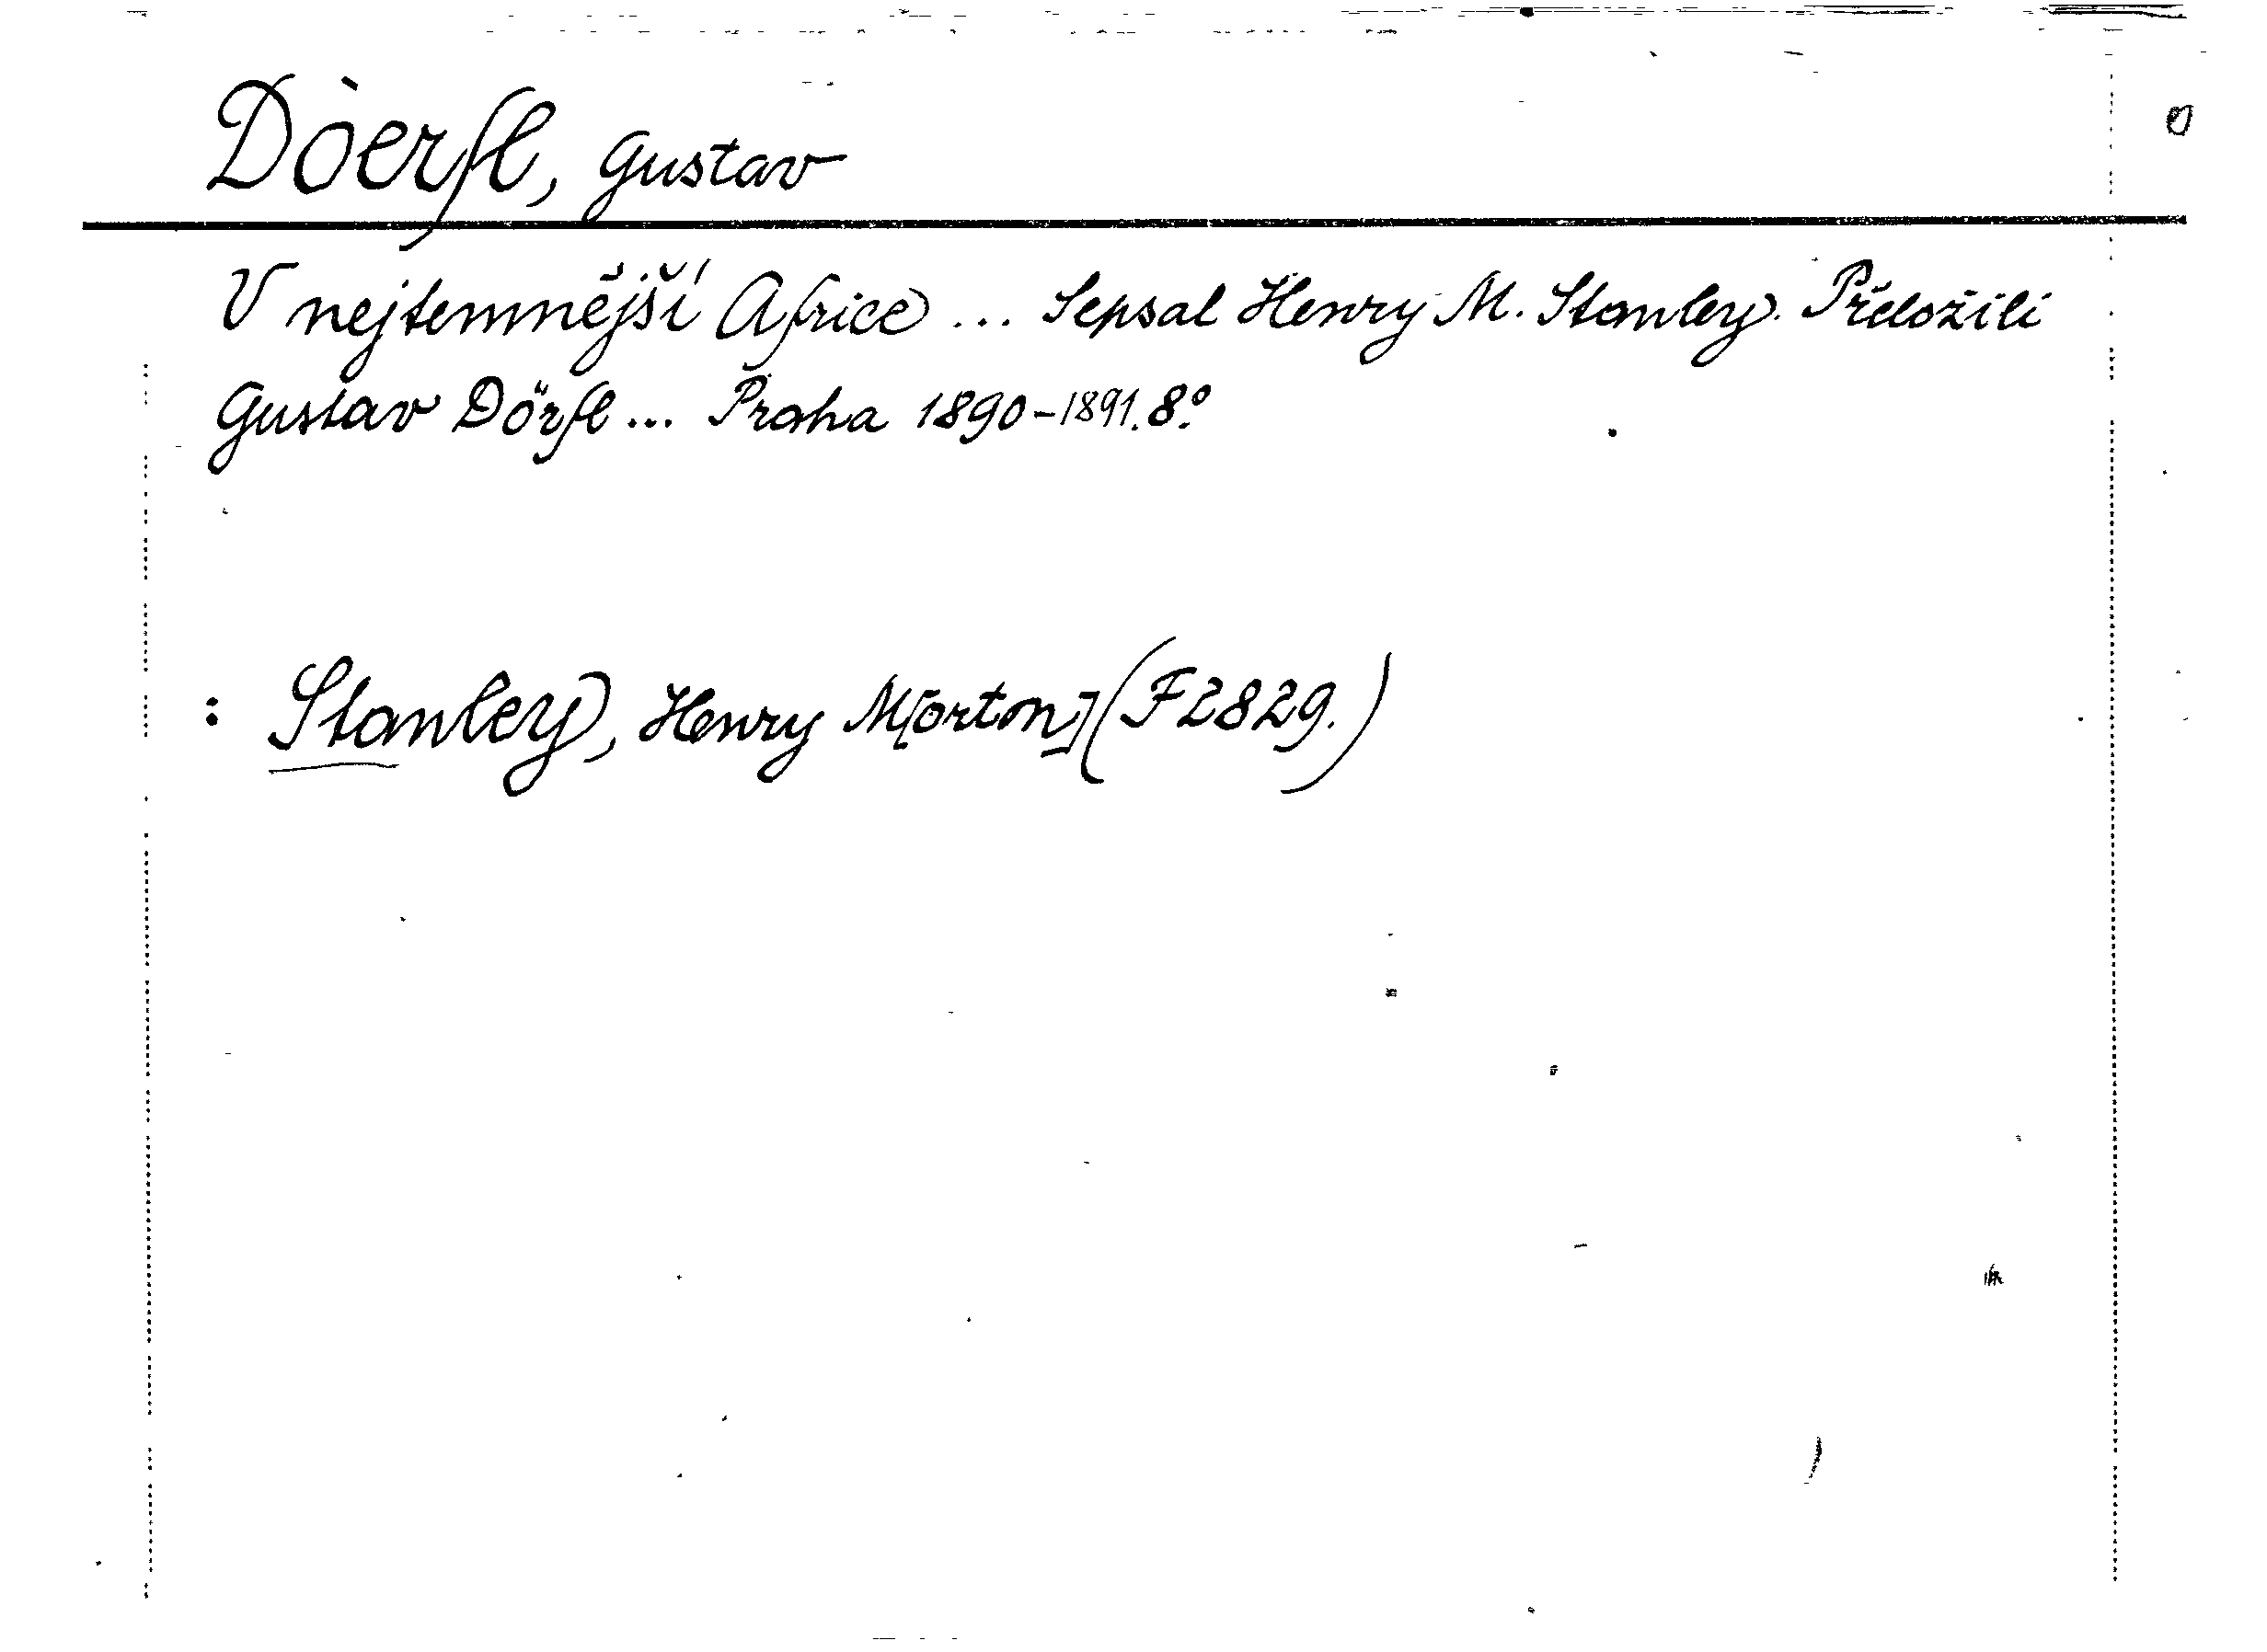 Döerfl, Gustav
V nejtemnější Africe ... Sepsal Henry M. Stanley. Přeložili
Gustav Dörfl ... Praha 1890-1891. 8°.
: Stanley, Henry M[orton] (F 2829.)